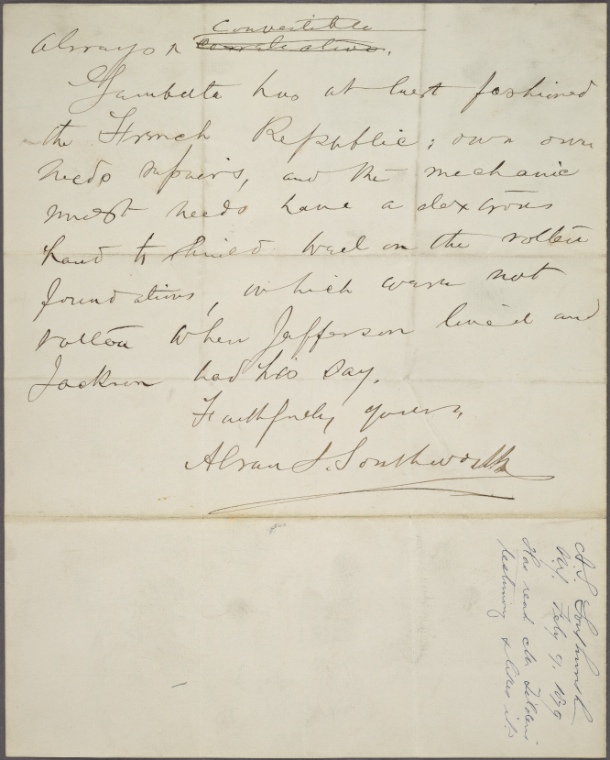 convertible
always ^ conciliative.
Gambetta has at last fashioned
the French Republic; own own
needs repairs, and the mechanic
must needs have a dextrous
hand to shield on the rotten
foundations, which were not
rotten when Jefferson lived and
Jackson had his day.
Faithfully yours,
Alvan S. Southworth
A. S. Southworth
N.Y. Feby 9, 1879
Has read Mr Tilden's
testimony & likes it.